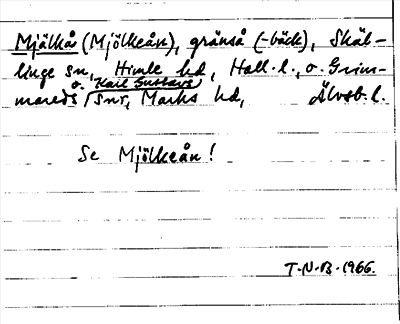 Mjälkå (Mjölkeån), gränså (-bäck), Skäl-
linge sn, Himle hd, Hall. l., o. Grim-
o. Karl Gustavs
mareds / snr, Marks hd, Älvsb. l.
Se Mjölkeån!
T.N.B. 1966.